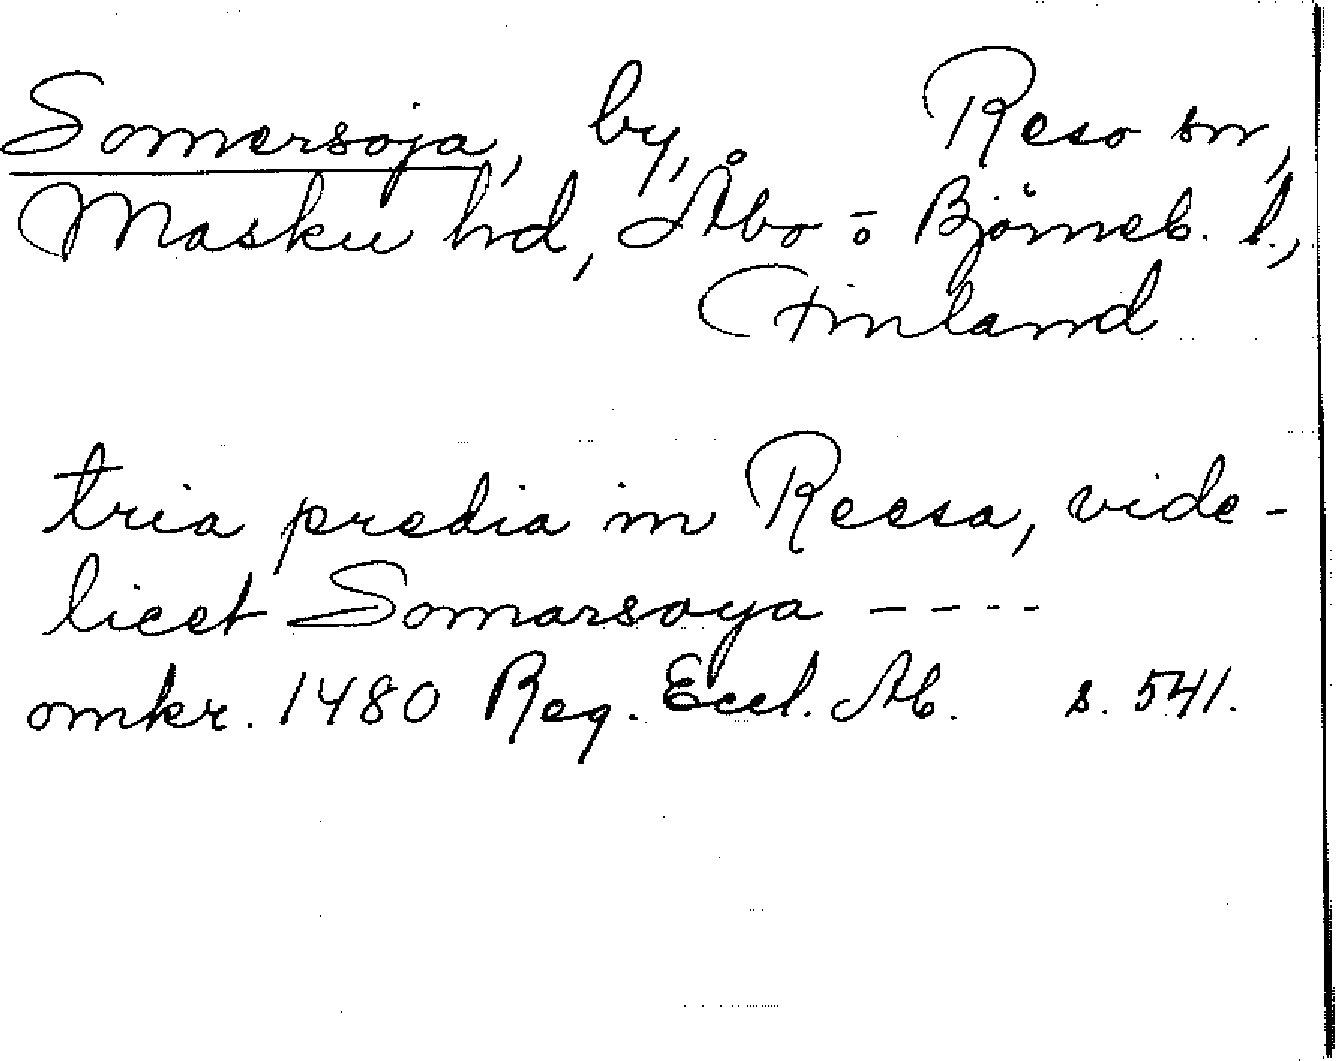 Somersoja, by, Reso sn,
Masku hd, Åbo o Björneb. l.,
Finland
tria predia in Reesa, vide-
licet Somarsoya ----
omkr. 1480 Reg. Eccl. Ab. s. 541.